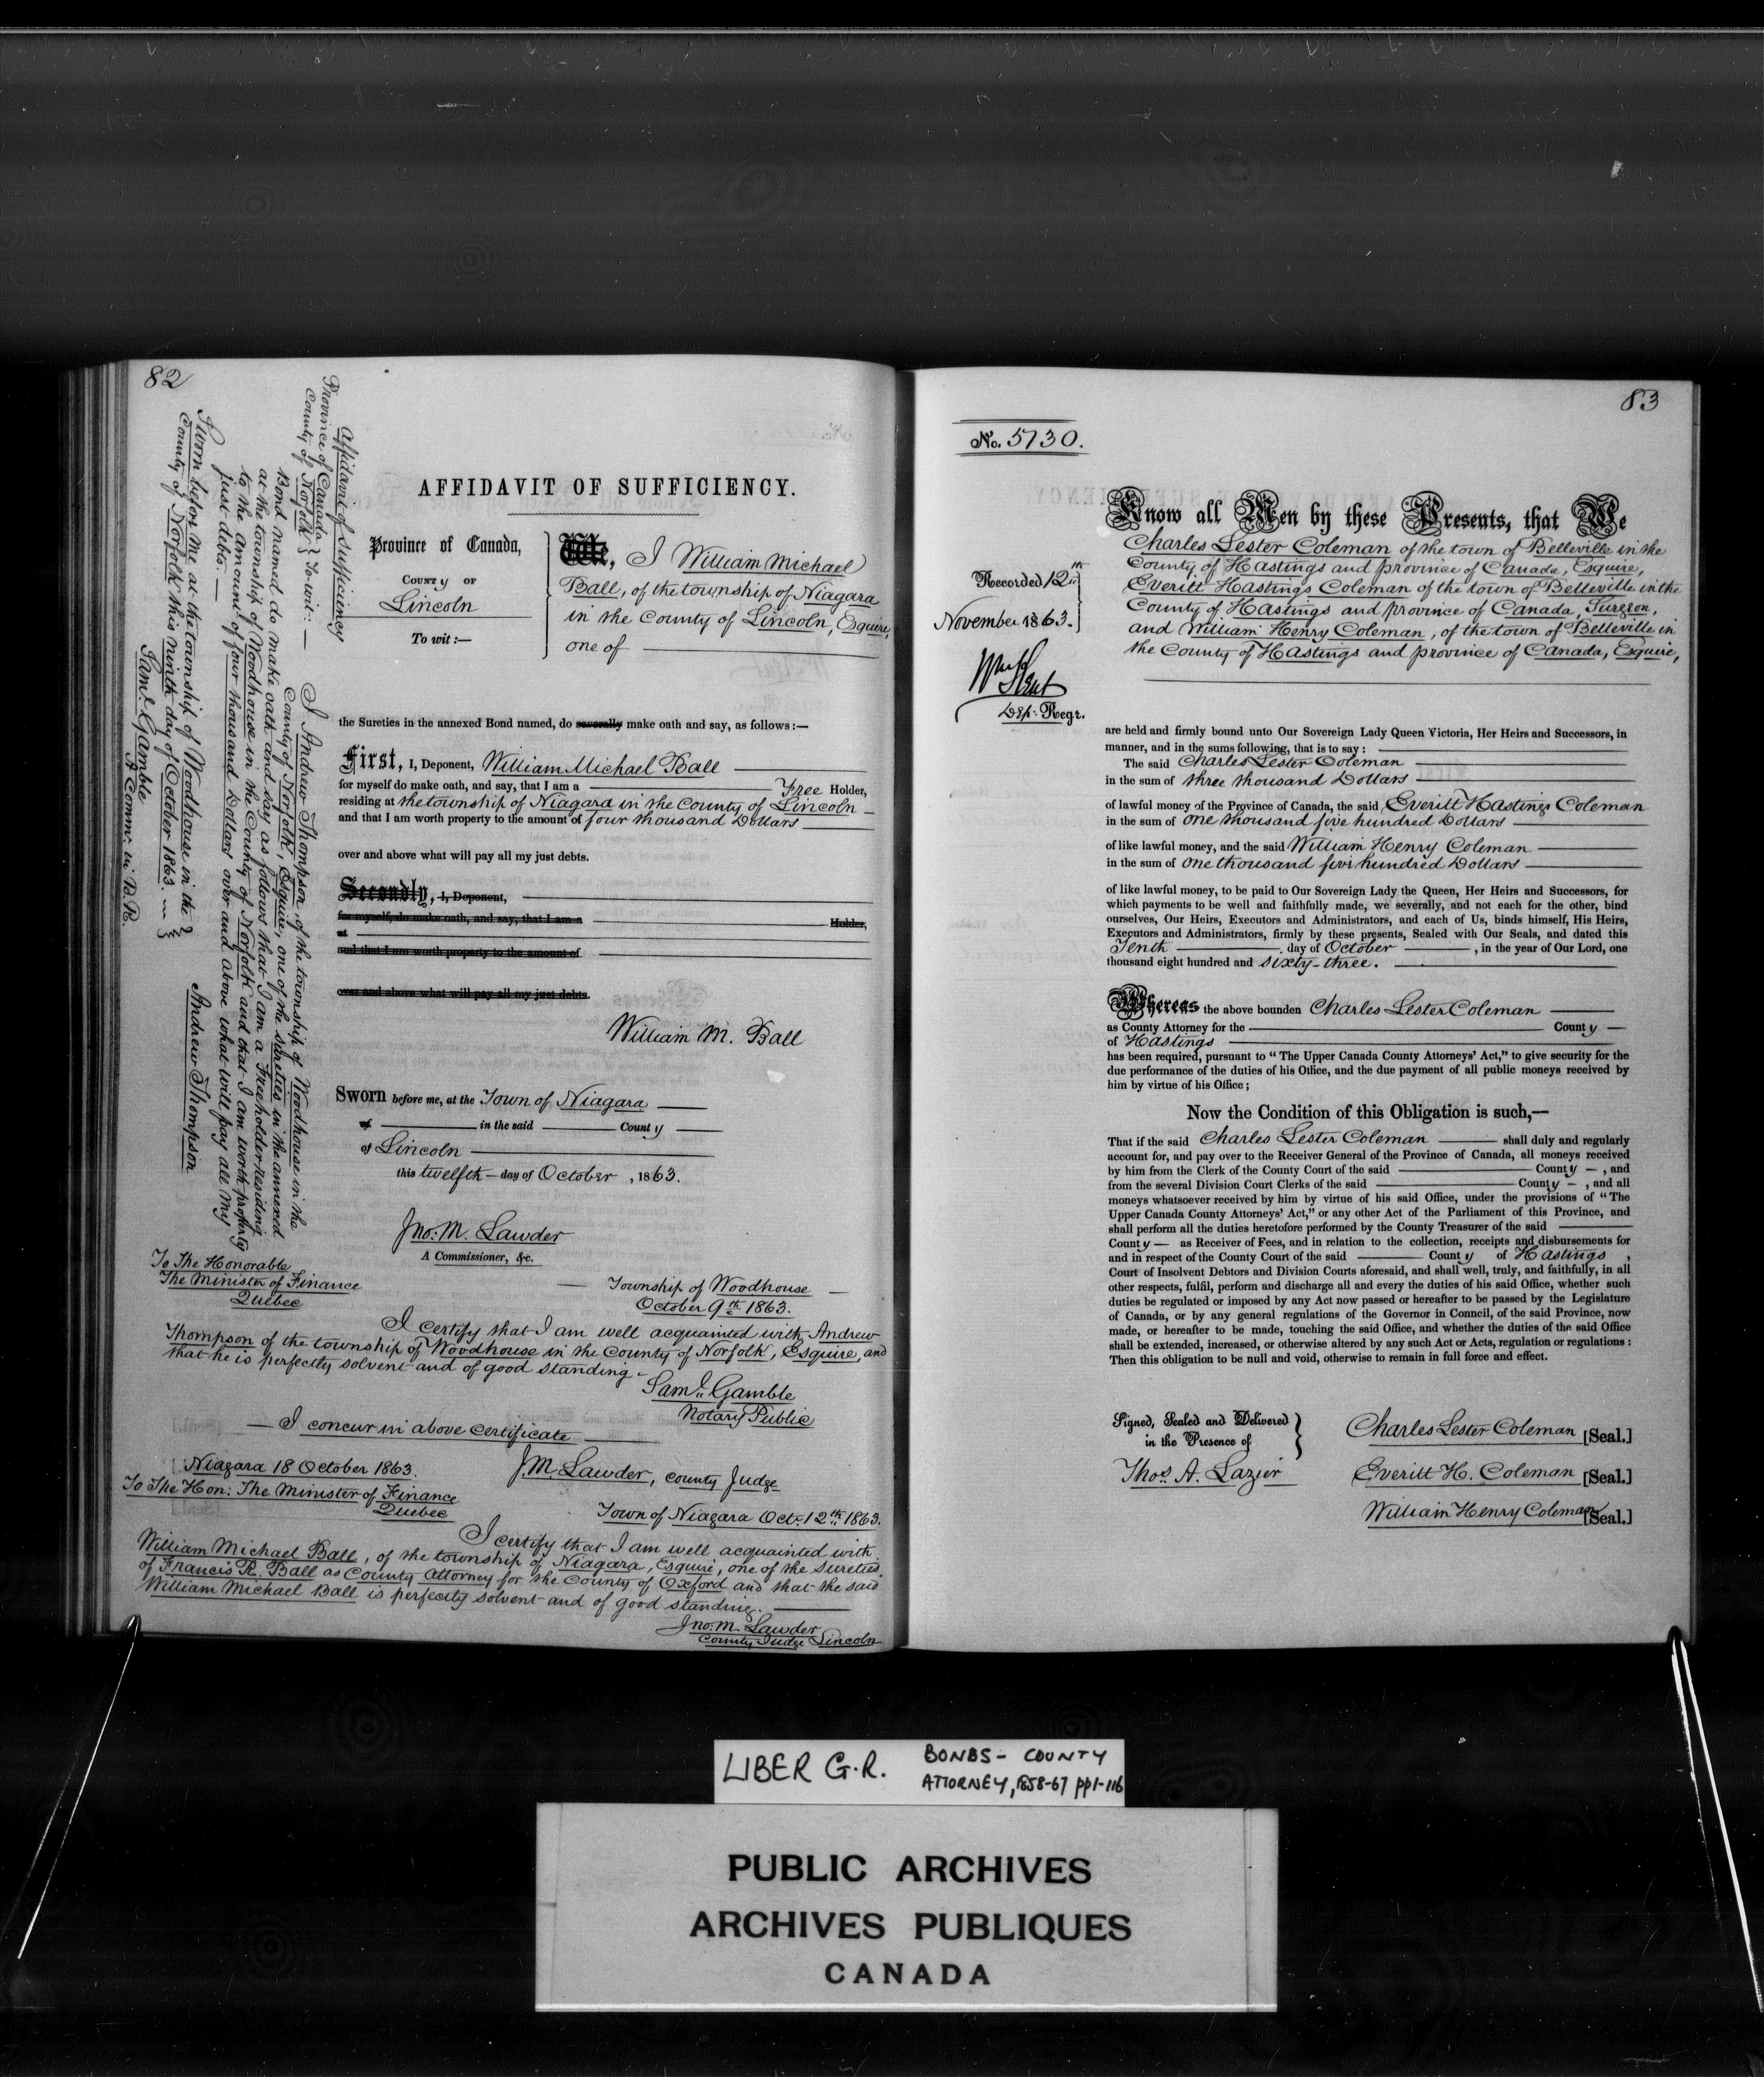 82
Affidavit of Sufficiency
Province of Canada
County of Norfolk } To wit: —
I Andrew Thompson of the township of Woodhouse in the
County of Norfolk, Esquire, one of the sureties in the annexed
Bond named do make oath and say as follows that I am a Freeholder residing
at the township of Woodhouse in the County of Norfolk and that I am worth property
to the amount of four thousand Dollars over and above what will pay all my
just debts. —
Sworn before me at the township of Woodhouse in the
County of Norfolk this ninth day of October 1863.
Andrew Thompson
Saml. Gamble
A Commr. in B.R.
AFFIDAVIT OF SUFFICIENCY.
Province of Canada,
County of
Lincoln
To wit:—
We, I William Michael
Ball, of the township of Niagara
in the County of Lincoln, Esquire,
one of
the Sureties in the annexed Bond named, do severally make oath and say, as follows:—
First, I, Deponent, William Michael Ball
for myself do make oath, and say, that I am a Free Holder,
residing at the township of Niagara in the County of Lincoln
and that I am worth property to the amount of four thousand Dollars
over and above what will pay all my just debts.
Secondly, I, Deponent,
for myself, do make oath, and say, that I am a Holder,
at
and that I am worth property to the amount of
over and above what will pay all my just debts.
William M. Ball
Sworn before me, at the Town of Niagara
of in the said County
of Lincoln
this twelfth day of October, 1863.
Jno: M. Lawder
A Commissioner, &c.
To The Honorable
The Minister of Finance
Quebec
Township of Woodhouse
October 9th 1863.
I certify that I am well acquainted with Andrew
Thompson of the township of Woodhouse in the County of Norfolk, Esquire, and
that he is perfectly solvent and of good standing.
Saml. Gamble
Notary Public
— I concur in above certificate
Niagara 18 October 1863.
J.M. Lawder, County Judge
To The Hon: The Minister of Finance
Quebec
Town of Niagara Oct. 12th 1863.
I certify that I am well acquainted with
William Michael Ball, of the township of Niagara, Esquire, one of the sureties
of Francis R. Ball as County Attorney for the County of Oxford and that the said
William Michael Ball is perfectly solvent and of good standing.
Jno: M. Lawder
County Judge Lincoln
83
No. 5730.
Recorded 12th
November 1863.
Wm Kent
Dep: Regr.
Know all Men by these Presents, that We
Charles Lester Coleman of the town of Belleville in the
County of Hastings and province of Canada, Esquire,
Everitt Hastings Coleman of the town of Belleville in the
County of Hastings and province of Canada, Surgeon,
and William Henry Coleman, of the town of Belleville in
the County of Hastings and province of Canada, Esquire,
are held and firmly bound unto Our Sovereign Lady Queen Victoria, Her Heirs and Successors, in
manner, and in the sums following, that is to say:
The said Charles Lester Coleman
in the sum of three thousand Dollars
of lawful money of the Province of Canada, the said Everitt Hastings Coleman
in the sum of one thousand five hundred Dollars
of like lawful money, and the said William Henry Coleman
in the sum of one thousand five hundred Dollars
of like lawful money, to be paid to Our Sovereign Lady the Queen, Her Heirs and Successors, for
which payments to be well and faithfully made, we severally, and not each for the other, bind
ourselves, Our Heirs, Executors and Administrators, and each of Us, binds himself, His Heirs,
Executors and Administrators, firmly by these presents, Sealed with Our Seals, and dated this
Tenth day of October, in the year of Our Lord, one
thousand eight hundred and sixty-three.
Whereas the above bounden Charles Lester Coleman
as County Attorney for the County
of Hastings
has been required, pursuant to "The Upper Canada County Attorneys' Act," to give security for the
due performance of the duties of his Office, and the due payment of all public moneys received by
him by virtue of his Office;
Now the Condition of this Obligation is such,—
That if the said Charles Lester Coleman shall duly and regularly
account for, and pay over to the Receiver General of the Province of Canada, all moneys received
by him from the Clerk of the County Court of the said County, and
from the several Division Court Clerks of the said County, and all
moneys whatsoever received by him by virtue of his said Office, under the provisions of "The
Upper Canada County Attorneys' Act," or any other Act of the Parliament of this Province, and
shall perform all the duties heretofore performed by the County Treasurer of the said
County — as Receiver of Fees, and in relation to the collection, receipts and disbursements for
and in respect of the County Court of the said County of Hastings,
Court of Insolvent Debtors and Division Courts aforesaid, and shall well, truly, and faithfully, in all
other respects, fulfil, perform and discharge all and every the duties of his said Office, whether such
duties be regulated or imposed by any Act now passed or hereafter to be passed by the Legislature
of Canada, or by any general regulations of the Governor in Council, of the said Province, now
made, or hereafter to be made, touching the said Office, and whether the duties of the said Office
shall be extended, increased, or otherwise altered by any such Act or Acts, regulation or regulations:
Then this obligation to be null and void, otherwise to remain in full force and effect.
Signed, Sealed and Delivered
in the Presence of
Thos. A. Lazier
Charles Lester Coleman [Seal.]
Everitt H. Coleman [Seal.]
William Henry Coleman [Seal.]
LIBER G.R.
BONDS - COUNTY
ATTORNEY, 1858-67 pp1-116
PUBLIC ARCHIVES
ARCHIVES PUBLIQUES
CANADA